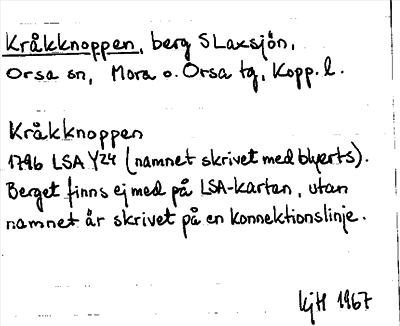 Kråkknoppen, berg S Laxsjön,
Orsa sn, Mora o. Orsa tg, Kopp. l.
Kråkknoppen
1796 LSA Y24 (namnet skrivet med blyerts).
Berget finns ej med på LSA-kartan, utan
namnet är skrivet på en konnektionslinje.
KjH 1967